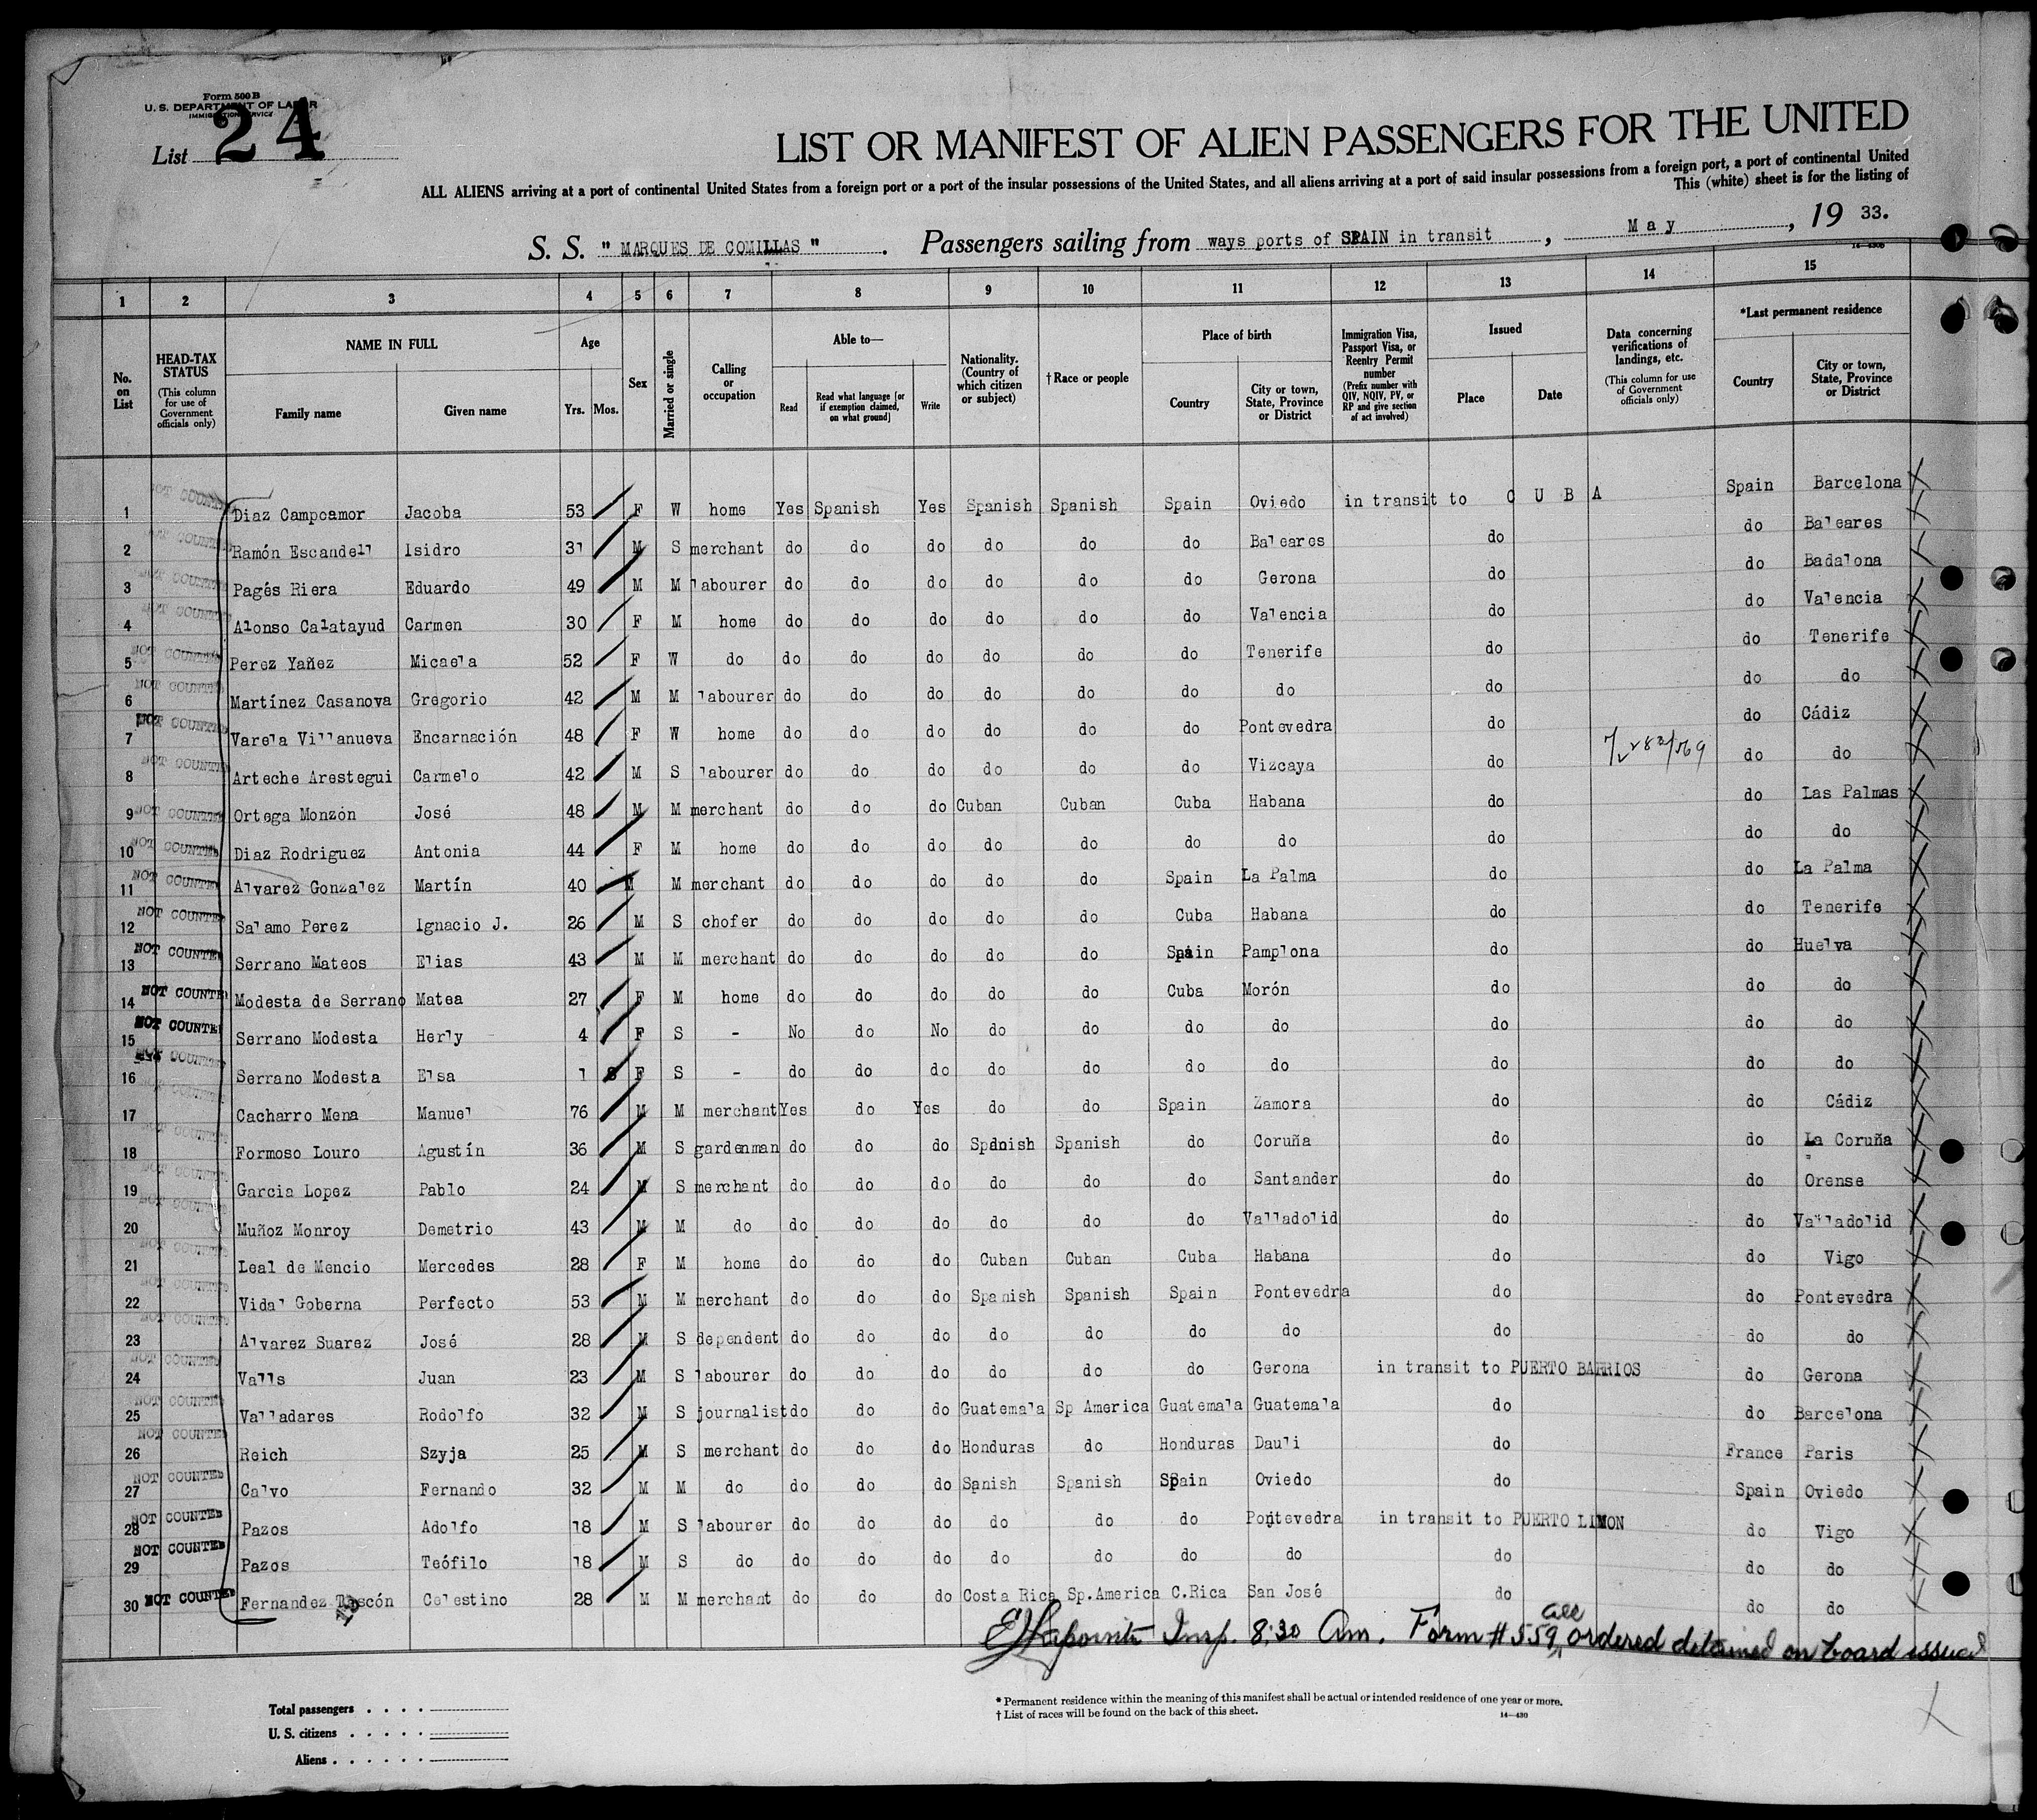 Form 500 B
U. S. DEPARTMENT OF LABOR
IMMIGRATION SERVICE
List 24
LIST OR MANIFEST OF ALIEN PASSENGERS FOR THE UNITED
ALL ALIENS arriving at a port of continental United States from a foreign port or a port of the insular possessions of the United States, and all aliens arriving at a port of said insular possessions from a foreign port, a port of continental United
This (white) sheet is for the listing of
S. S. " MARQUES DE COMILLAS " . Passengers sailing from ways ports of SPAIN in transit , May , 19 33.
1 2 3 4 5 6 7 8 9 10 11 12 13 14 15
No. on List
HEAD-TAX STATUS (This column for use of Government officials only)
NAME IN FULL
Family name Given name
Age
Yrs. Mos.
Sex
Married or single
Calling or occupation
Able to—
Read Read what language [or if exemption claimed, on what ground] Write
Nationality. (Country of which citizen or subject)
† Race or people
Place of birth
Country City or town, State, Province or District
Immigration Visa, Passport Visa, or Reentry Permit number (Prefix number with QIV, NQIV, PV, or RP and give section of act involved)
Issued
Place Date
Data concerning verifications of landings, etc. (This column for use of Government officials only)
*Last permanent residence
Country City or town, State, Province or District
1 NOT COUNTED Diaz Campoamor Jacoba 53 F W home Yes Spanish Yes Spanish Spanish Spain Oviedo in transit to C U B A Spain Barcelona
2 NOT COUNTED Ramón Escandell Isidro 31 M S merchant do do do do do do Baleares do do Baleares
3 NOT COUNTED Pagés Riera Eduardo 49 M M labourer do do do do do do Gerona do do Badalona
4 NOT COUNTED Alonso Calatayud Carmen 30 F M home do do do do do do Valencia do do Valencia
5 NOT COUNTED Perez Yañez Micaela 52 F W do do do do do do do Tenerife do do Tenerife
6 NOT COUNTED Martínez Casanova Gregorio 42 M M labourer do do do do do do do do do do
7 NOT COUNTED Varela Villanueva Encarnación 48 F W home do do do do do do Pontevedra do do Cádiz
8 NOT COUNTED Arteche Arestegui Carmelo 42 M S labourer do do do do do do Vizcaya do do do
9 NOT COUNTED Ortega Monzón José 48 M M merchant do do do Cuban Cuban Cuba Habana do do Las Palmas
10 NOT COUNTED Diaz Rodriguez Antonia 44 F M home do do do do do do do do do do
11 NOT COUNTED Alvarez Gonzalez Martín 40 M M merchant do do do do do Spain La Palma do do La Palma
12 NOT COUNTED Salamo Perez Ignacio J. 26 M S chofer do do do do do Cuba Habana do do Tenerife
13 NOT COUNTED Serrano Mateos Elias 43 M M merchant do do do do do Spain Pamplona do do Huelva
14 NOT COUNTED Modesta de Serrano Matea 27 F M home do do do do do Cuba Morón do do do
15 NOT COUNTED Serrano Modesta Herly 4 F S - No do No do do do do do do do
16 NOT COUNTED Serrano Modesta Elsa 1 8 F S - do do do do do do do do do do
17 NOT COUNTED Cacharro Mena Manuel 76 M M merchant Yes do Yes do do Spain Zamora do do Cádiz
18 NOT COUNTED Formoso Louro Agustín 36 M S gardenman do do do Spanish Spanish do Coruña do do La Coruña
19 NOT COUNTED Garcia Lopez Pablo 24 M S merchant do do do do do do Santander do do Orense
20 NOT COUNTED Muñoz Monroy Demetrio 43 M M do do do do do do do Valladolid do do Valladolid
21 NOT COUNTED Leal de Mencio Mercedes 28 F M home do do do Cuban Cuban Cuba Habana do do Vigo
22 NOT COUNTED Vidal Goberna Perfecto 53 M M merchant do do do Spanish Spanish Spain Pontevedra do do Pontevedra
23 NOT COUNTED Alvarez Suarez José 28 M S dependent do do do do do do do do do do
24 NOT COUNTED Valls Juan 23 M S labourer do do do do do do Gerona in transit to PUERTO BARRIOS do Gerona
25 NOT COUNTED Valladares Rodolfo 32 M S journalist do do do Guatemala Sp America Guatemala Guatemala do do Barcelona
26 NOT COUNTED Reich Szyja 25 M S merchant do do do Honduras do Honduras Dauli do France Paris
27 NOT COUNTED Calvo Fernando 32 M M do do do do Spanish Spanish Spain Oviedo do Spain Oviedo
28 NOT COUNTED Pazos Adolfo 18 M S labourer do do do do do do Pontevedra in transit to PUERTO LIMON do Vigo
29 NOT COUNTED Pazos Teófilo 18 M S do do do do do do do do do do do
30 NOT COUNTED Fernandez Tascón Celestino 28 M M merchant do do do Costa Rica Sp.America C.Rica San José do do do
Insp. 8:30 Am. Form # 559 all ordered detained on board issued
Total passengers . . . .
U. S. citizens . . . . .
Aliens . . . . . .
* Permanent residence within the meaning of this manifest shall be actual or intended residence of one year or more.
† List of races will be found on the back of this sheet.
14—430